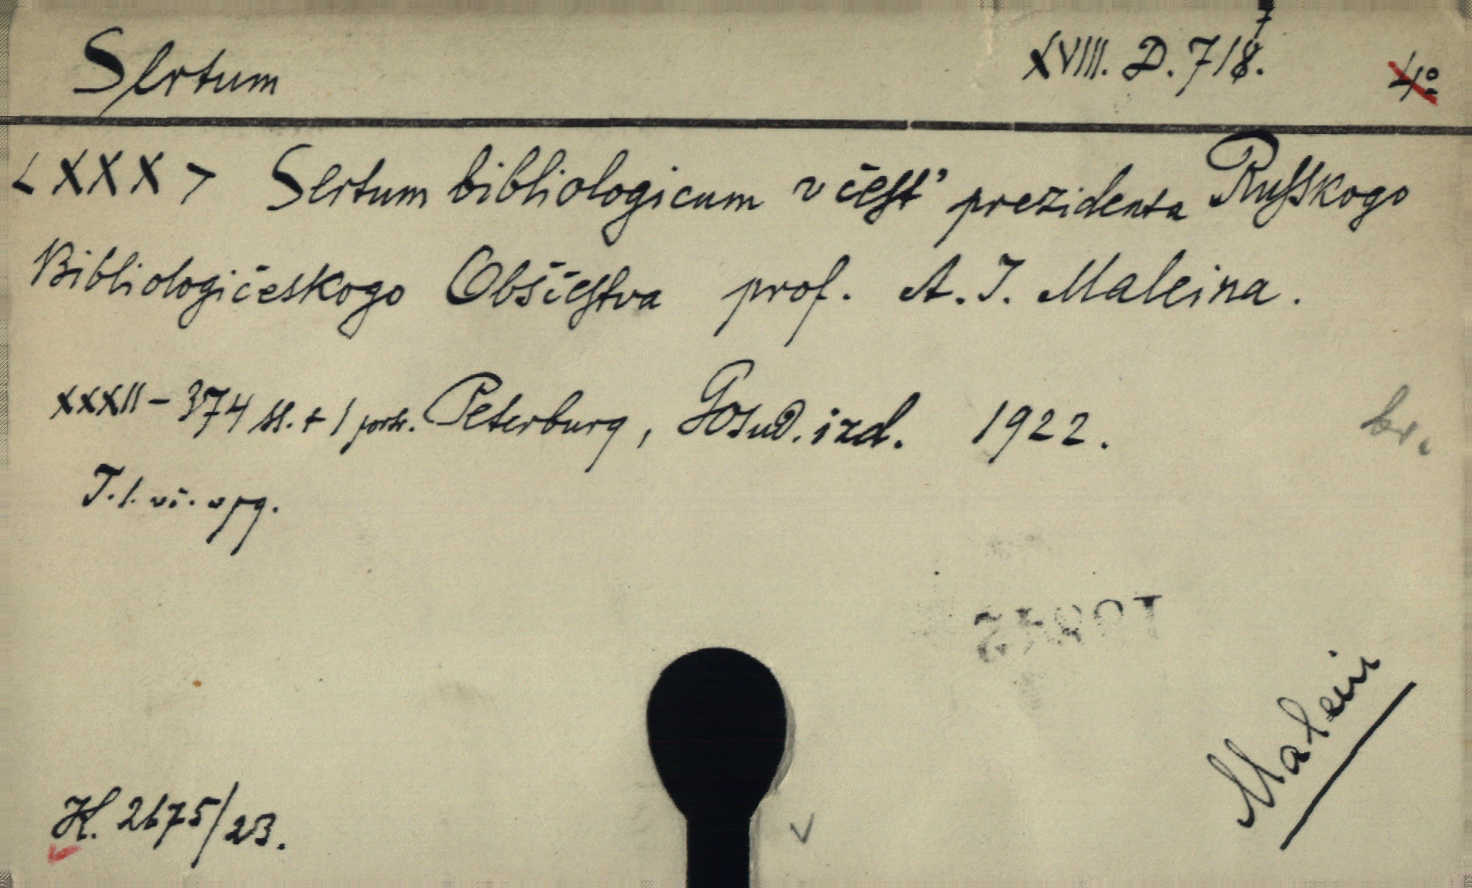 Sertum XVIII. D. 718. 7 4°
<XXX> Sertum bibliologicum v čest' prezidenta Russkogo
Bibliologičeskogo Obščestva prof. A. I. Maleina.
XXXII - 374 ss. + 1 portr. Peterburg, Gosud. izd. 1922. br.
T. l. vč. v pg.
Malein
H. 2675/23.